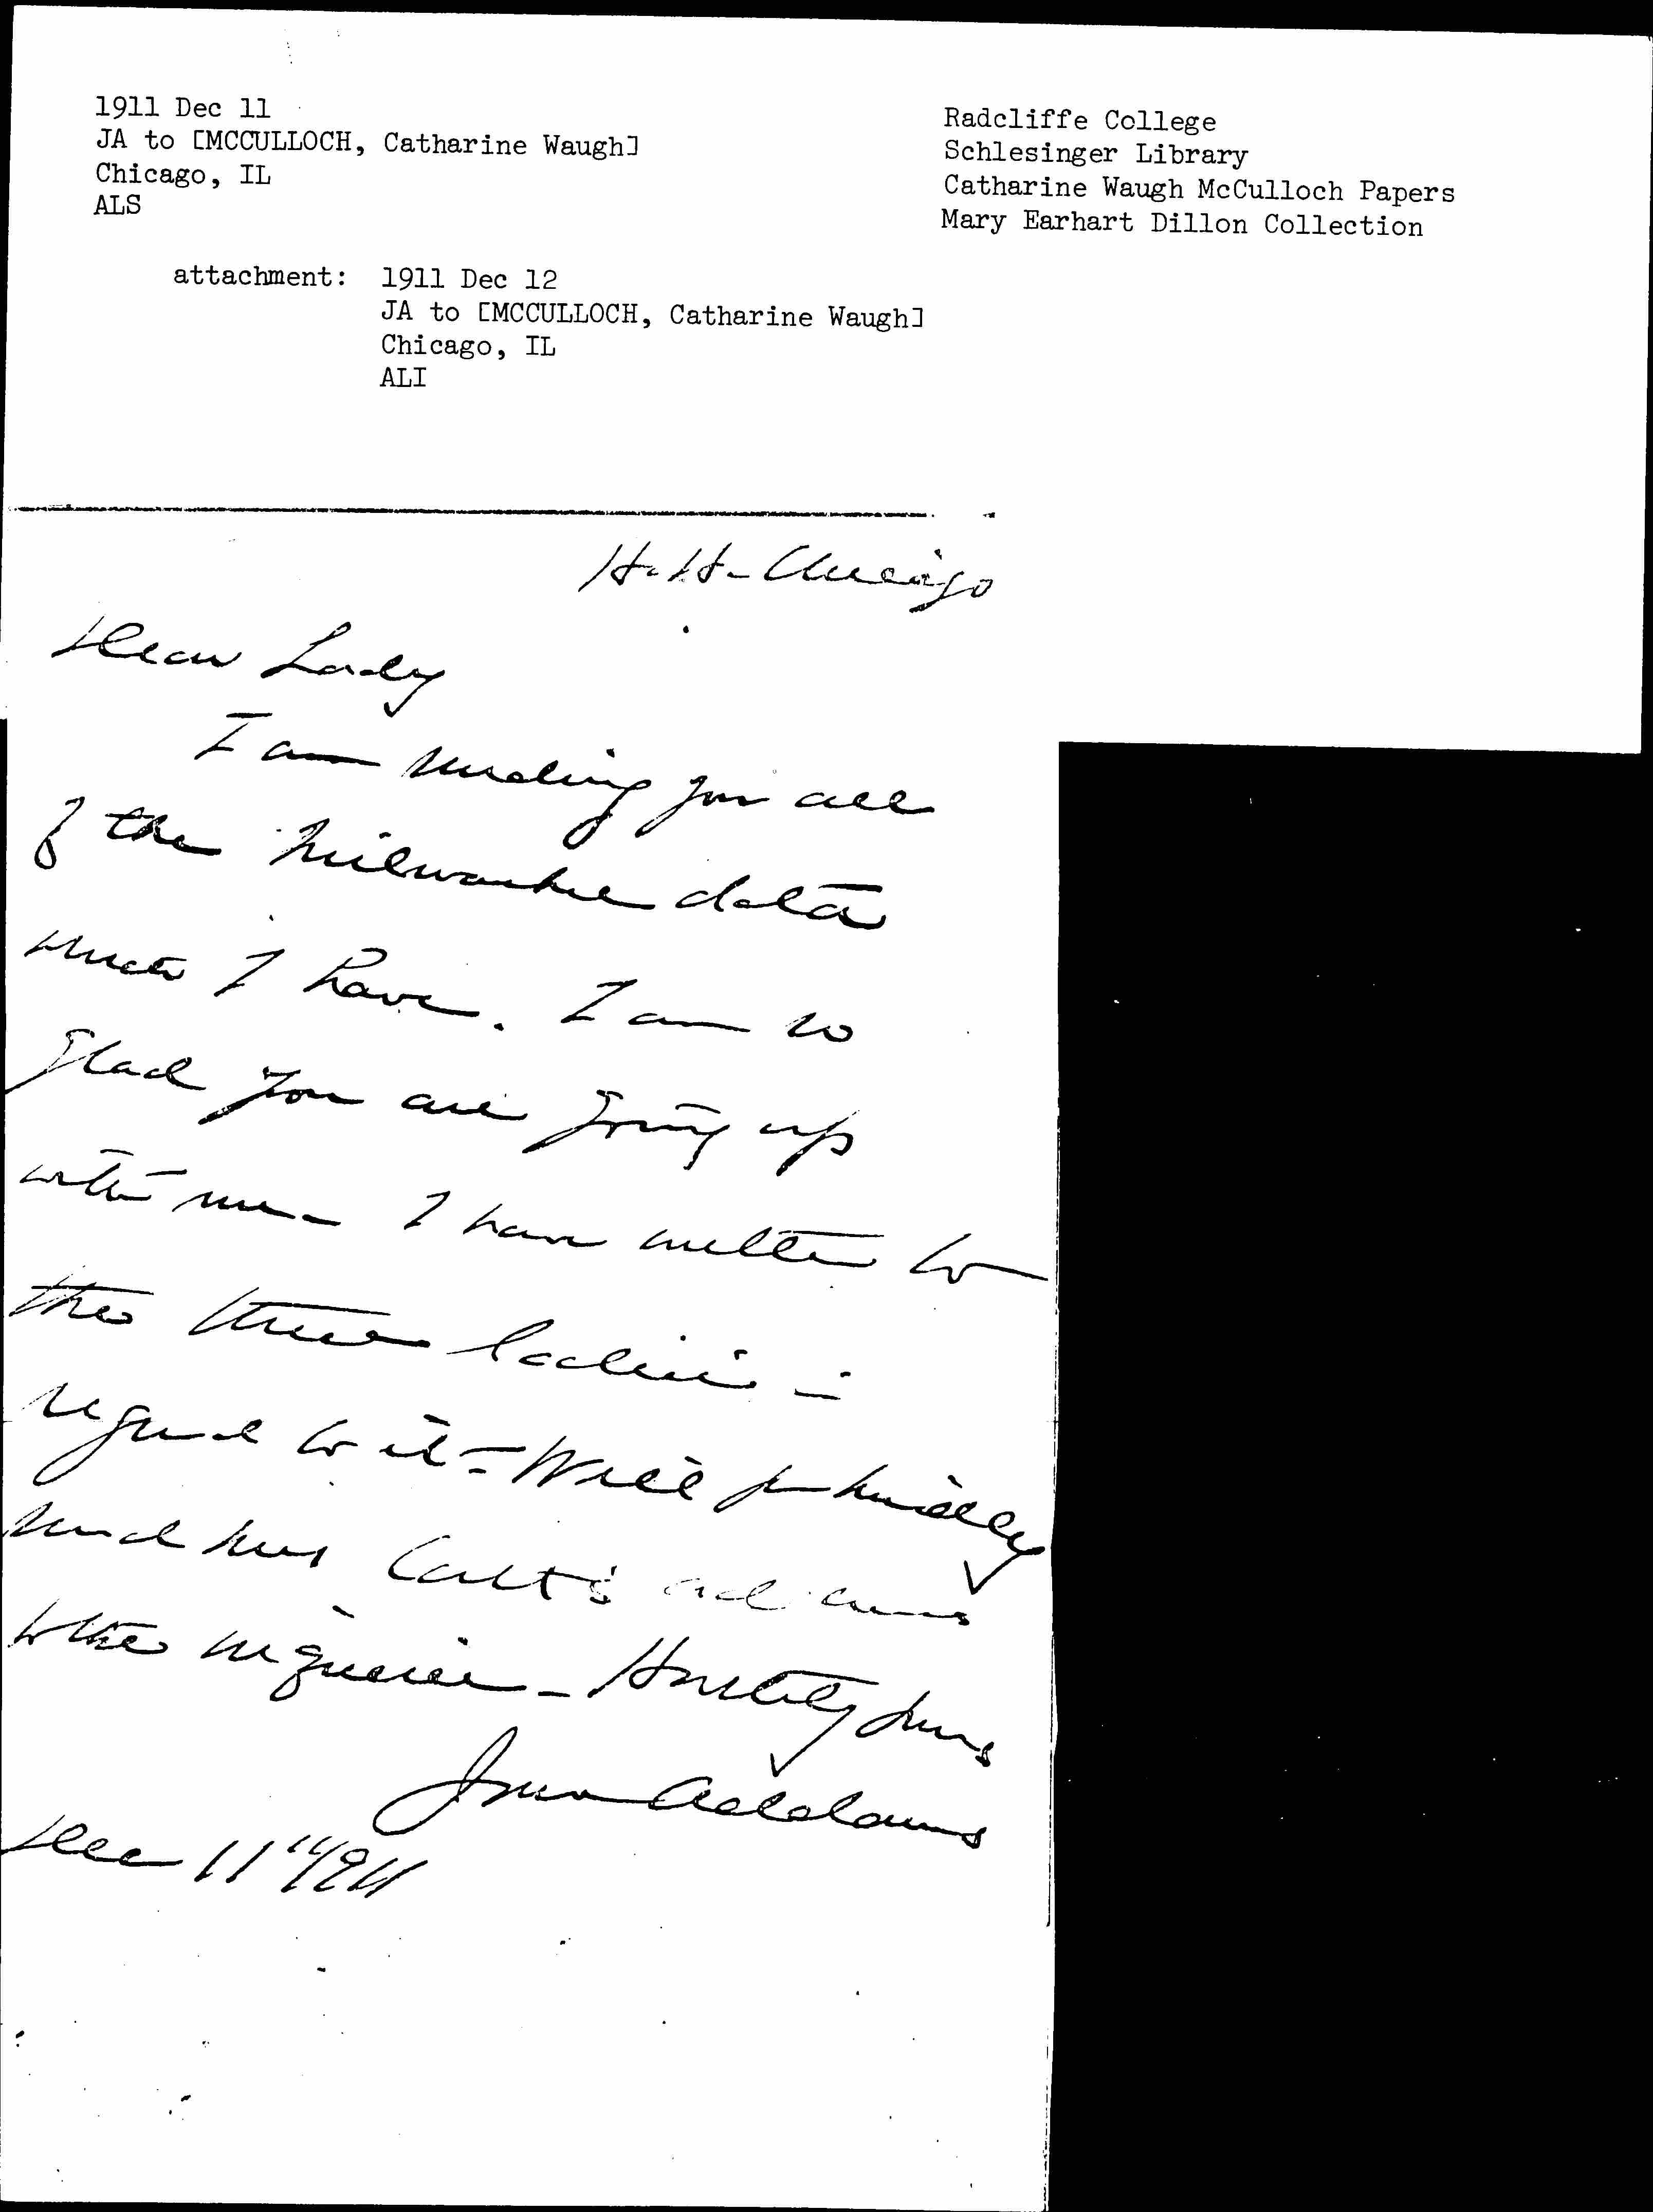 1911 Dec 11
JA to [MCCULLOCH, Catharine Waugh]
Chicago, IL
ALS
Radcliffe College
Schlesinger Library
Catharine Waugh McCulloch Papers
Mary Earhart Dillon Collection
attachment: 1911 Dec 12
JA to [MCCULLOCH, Catharine Waugh]
Chicago, IL
ALI
H. H- Chicago
Dear Lady
I am sending you all
of the Milwaukee data
which I have. I am so
glad you are going up
with me - I have written to
the three ladies in
regard to it - Will you kindly
send Mrs Catt's address
to the inquirer - Hastily yours
Jane Addams
Dec 11" 1911